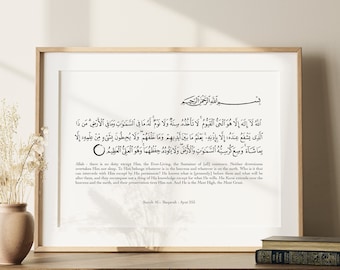 بِسْمِ اللَّهِ الرَّحْمَٰنِ الرَّحِيمِ
اللَّهُ لَا إِلَٰهَ إِلَّا هُوَ الْحَيُّ الْقَيُّومُ لَا تَأْخُذُهُ سِنَةٌ وَلَا نَوْمٌ لَهُ مَا فِي السَّمَاوَاتِ وَمَا فِي الْأَرْضِ مَنْ ذَا
الَّذِي يَشْفَعُ عِنْدَهُ إِلَّا بِإِذْنِهِ يَعْلَمُ مَا بَيْنَ أَيْدِيهِمْ وَمَا خَلْفَهُمْ وَلَا يُحِيطُونَ بِشَيْءٍ مِنْ عِلْمِهِ إِلَّا
بِمَا شَاءَ وَسِعَ كُرْسِيُّهُ السَّمَاوَاتِ وَالْأَرْضَ وَلَا يَئُودُهُ حِفْظُهُمَا وَهُوَ الْعَلِيُّ الْعَظِيمُ
Allah - there is no deity except Him, the Ever-Living, the Sustainer of [all] existence. Neither drowsiness
overtakes Him nor sleep. To Him belongs whatever is in the heavens and whatever is on the earth. Who is it that
can intercede with Him except by His permission? He knows what is [presently] before them and what will be
after them, and they encompass not a thing of His knowledge except for what He wills. His Kursi extends over the
heavens and the earth, and their preservation tires Him not. And He is the Most High, the Most Great.